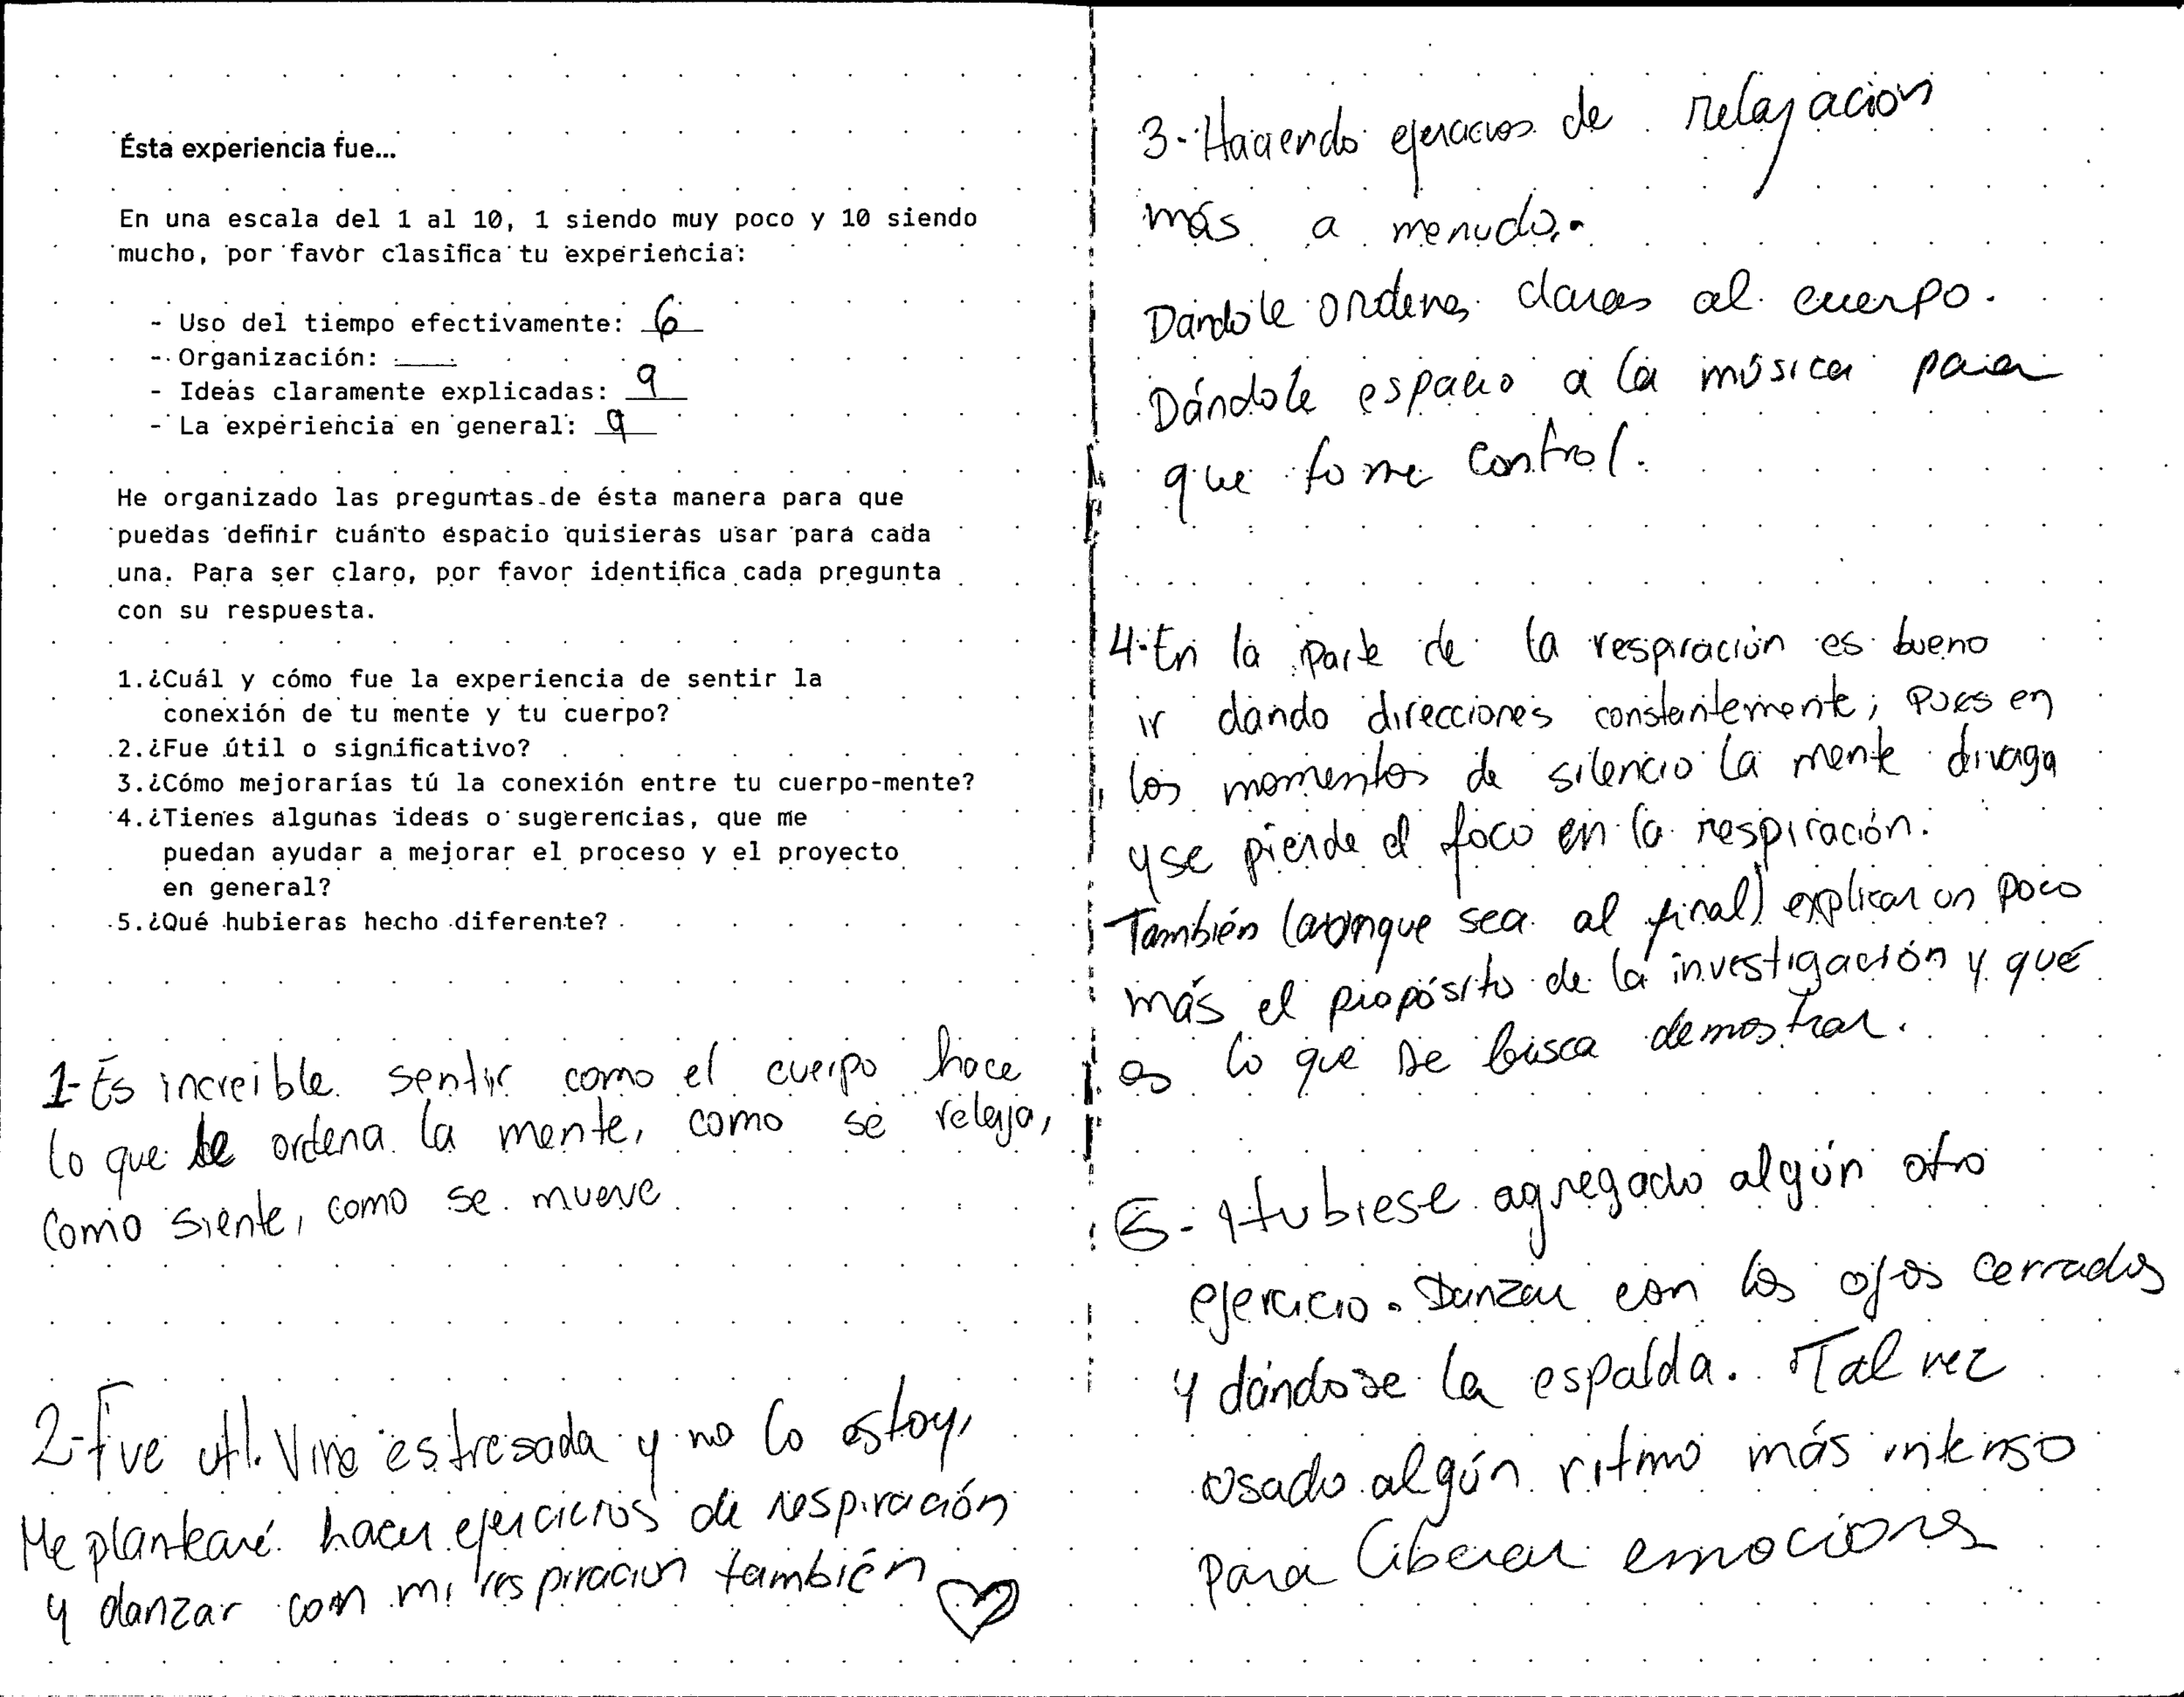 Ésta experiencia fue...
En una escala del 1 al 10, 1 siendo muy poco y 10 siendo
mucho, por favor clasifica tu experiencia:
- Uso del tiempo efectivamente: 6
- Organización: ____
- Ideas claramente explicadas: 9
- La experiencia en general: 9
He organizado las preguntas de ésta manera para que
puedas definir cuánto espacio quisieras usar para cada
una. Para ser claro, por favor identifica cada pregunta
con su respuesta.
1.¿Cuál y cómo fue la experiencia de sentir la
conexión de tu mente y tu cuerpo?
2.¿Fue útil o significativo?
3.¿Cómo mejorarías tú la conexión entre tu cuerpo-mente?
4.¿Tienes algunas ideas o sugerencias, que me
puedan ayudar a mejorar el proceso y el proyecto
en general?
5.¿Qué hubieras hecho diferente?
1- Es increible sentir como el cuerpo hace
lo que le ordena la mente, como se relaja,
como siente, como se mueve
2- Fue util. Vine estresada y no lo estoy,
Me plantearé hacer ejercicios de respiración
y danzar con mi respiración también
3- Haciendo ejercicios de relajación
más a menudo.
Dándole ordenes claras al cuerpo.
Dándole espacio a la música para
que tome control.
4- En la parte de la respiración es bueno
ir dando direcciones constantemente; pues en
los momentos de silencio la mente divaga
y se pierde el foco en la respiración.
También (aunque sea al final) explicar un poco
más el propósito de la investigación y qué
es lo que se busca demostrar.
5- Hubiese agregado algún otro
ejercicio. Danzar con los ojos cerrados
y dándose la espalda. Tal vez
usado algún ritmo más intenso
para liberar emociones